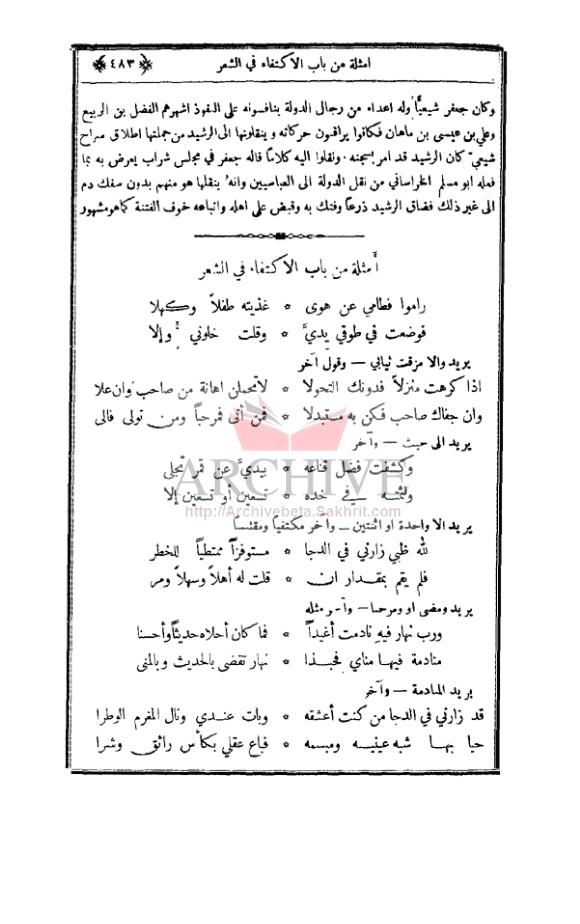 امثلة من باب الاكتفاء في الشعر ﴿ ٤٨٣ ﴾
وكان جعفر شيعيًّا وله اعداء من رجال الدولة ينافسونه على النفوذ اشهرهم الفضل بن الربيع
وعلي بن عيسى بن ماهان فكانوا يراقبون حركاته و ينقلونها الى الرشيد من جملتها اطلاق سراح
شيعيّ كان الرشيد قد امر بسجنه. ونقلوا اليه كلاماً قاله جعفر في مجلس شراب يعرض به بما
فعله ابو مسلم الخراساني من نقل الدولة الى العباسيين وانهُ ينقلها هو منهم بدون سفك دم
الى غير ذلك فضاق الرشيد ذرعاً وفتك به وقبض على اهله واتباعه خوف الفتنة كما هو مشهور
أمثلة من باب الاكتفاء في الشعر
راموا فطامي عن هوى * غذيته طفلاً وكهلا
فوضعت في طوقي يديَّ * وقلت خلوني وإلا
يريد والا مزقت ثيابي — وقول آخر
اذا كرهت منزلاً فدونك التحولا * لاتحملن اهانة من صاحب وان علا
وان جفاك صاحب فكن به مستبدلا * فمن أتى فمرحباً ومن تولى فالى
يريد الى حيث — وآخر
وكشفت فضل قناعه * بيديَّ عن قمر تجلى
ولثمته في خده * تسعين او تسعين إلا
ARCHIVE
http://Archivebeta.Sakhrit.com
يريد الا واحدة او اثنتين — وآخر مكتفياً ومقتبساً
لله ظبي زارني في الدجا * مستوفزاً ممتطياً للخطر
فلم يقم بمقدار ان * قلت له أهلاً وسهلاً ومر
يريد ومضى او ومرحبا — وآخر مثله
ورب نهار فيه نادمت أغيداً * فما كان أحلاه حديثاً وأحسنا
منادمة فيها مناي فحبذا * نهار تقضى بالحديث وبالمنى
يريد المنادمة — وآخر
قد زارني في الدجا من كنت أعشقه * وبات عندي ونال المغرم الوطرا
حيا بها شبه عينيه ومبسمه * فباع عقلي بكأس رائق وشرا